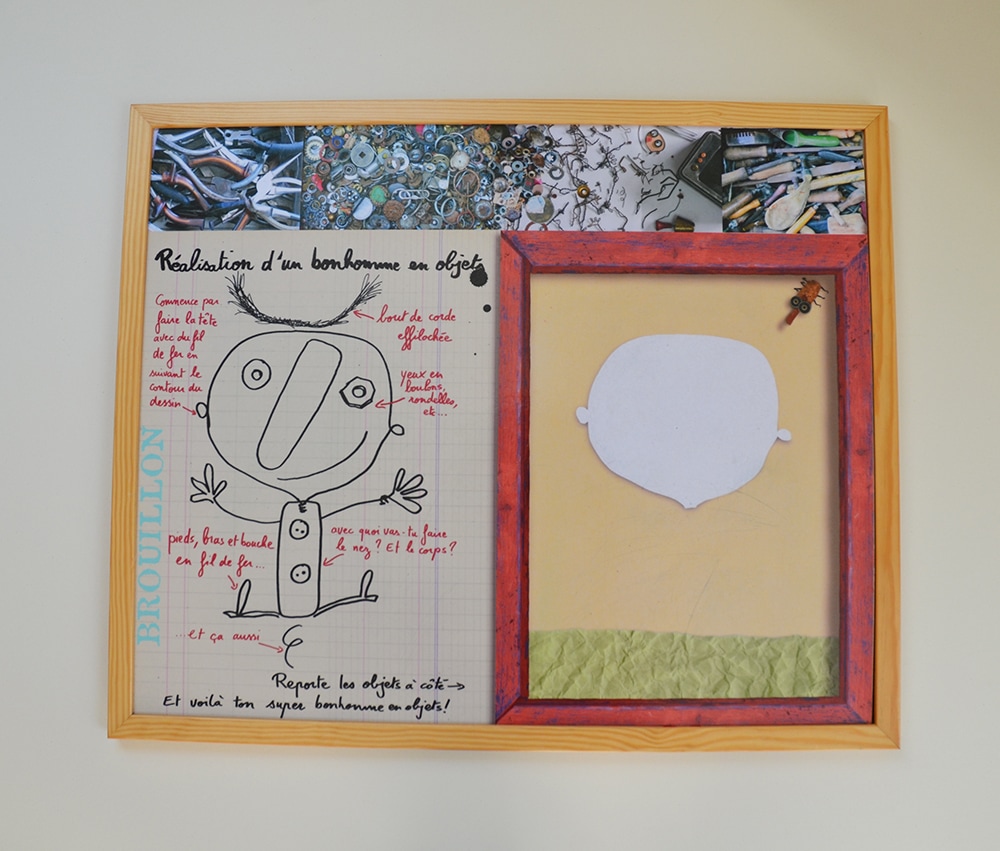 Réalisation d'un bonhomme en objets
Commence par
faire la tête
avec du fil
de fer en
suivant le
contour du
dessin
bout de corde
effilochée
yeux en
boulons,
rondelles,
etc...
BROUILLON
pieds, bras et bouche
en fil de fer...
avec quoi vas-tu faire
le nez? Et le corps?
...et ça aussi
Reporte les objets à côté
Et voilà ton super bonhomme en objets!